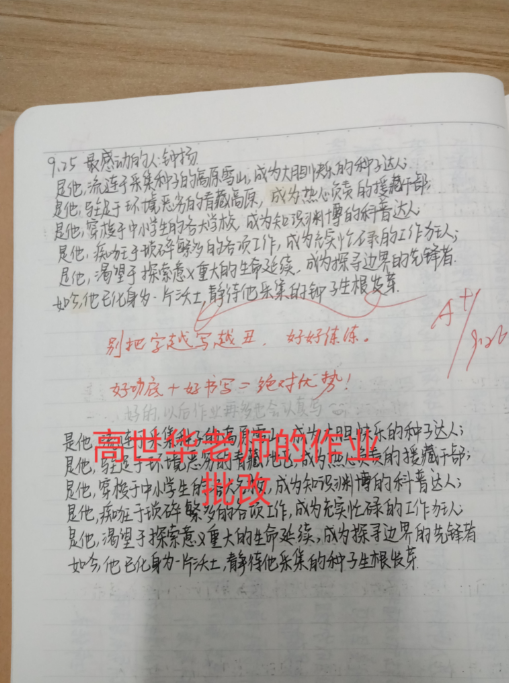 9.25 最感动的人·钟扬
是他,流连于采集种子的高原雪山,成为大胆快乐的种子达人;
是他,驻足于环境恶劣的青藏高原,成为热心负责的援藏干部;
是他,穿梭于中小学生的各大学校,成为知识渊博的科普达人;
是他,痴迷于琐碎繁多的各项工作,成为充实忙碌的工作方人;
是他,渴望于探索意义重大的生命延续,成为探寻边界的先锋者.
如今,他已化身为一片沃土,静待他采集的种子生根发芽.
别把字越写越丑,好好练练。
A+
9.26
好功底+好书写=绝对优势!
好的,以后作业再多也会认真写
是他,流连于采集种子的高原雪山,成为大胆快乐的种子达人;
高世华老师的作业
是他,驻足于环境恶劣的青藏地,成为热心负责的援藏干部;
批改
是他,穿梭于中小学生的各,成为知识渊博的科普达人;
是他,痴迷于琐碎繁多的各项工作,成为充实忙碌的工作方人;
是他,渴望于探索意义重大的生命延续,成为探寻边界的先锋者
如今,他已化身为一片沃土,静待他采集的种子生根发芽